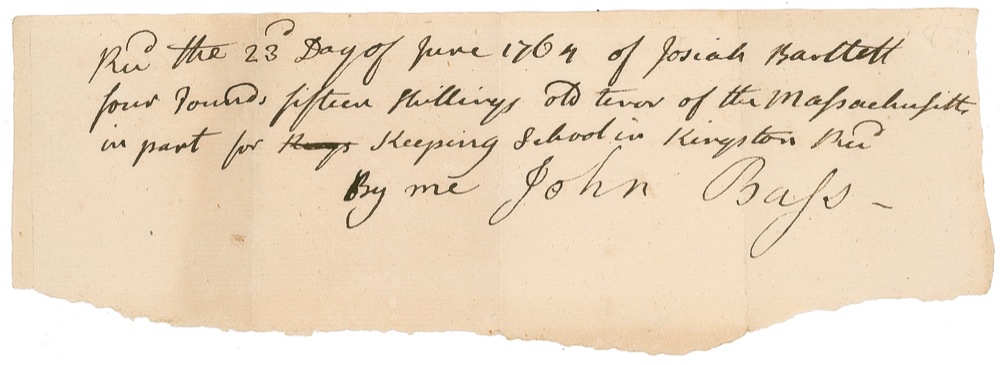 Recd the 23d Day of June 1764 of Josiah Bartlett
four Pounds fifteen Shillings old tenor of the Massachusitts
in part for Keeping School in Kingston Recd
By me John Bass –